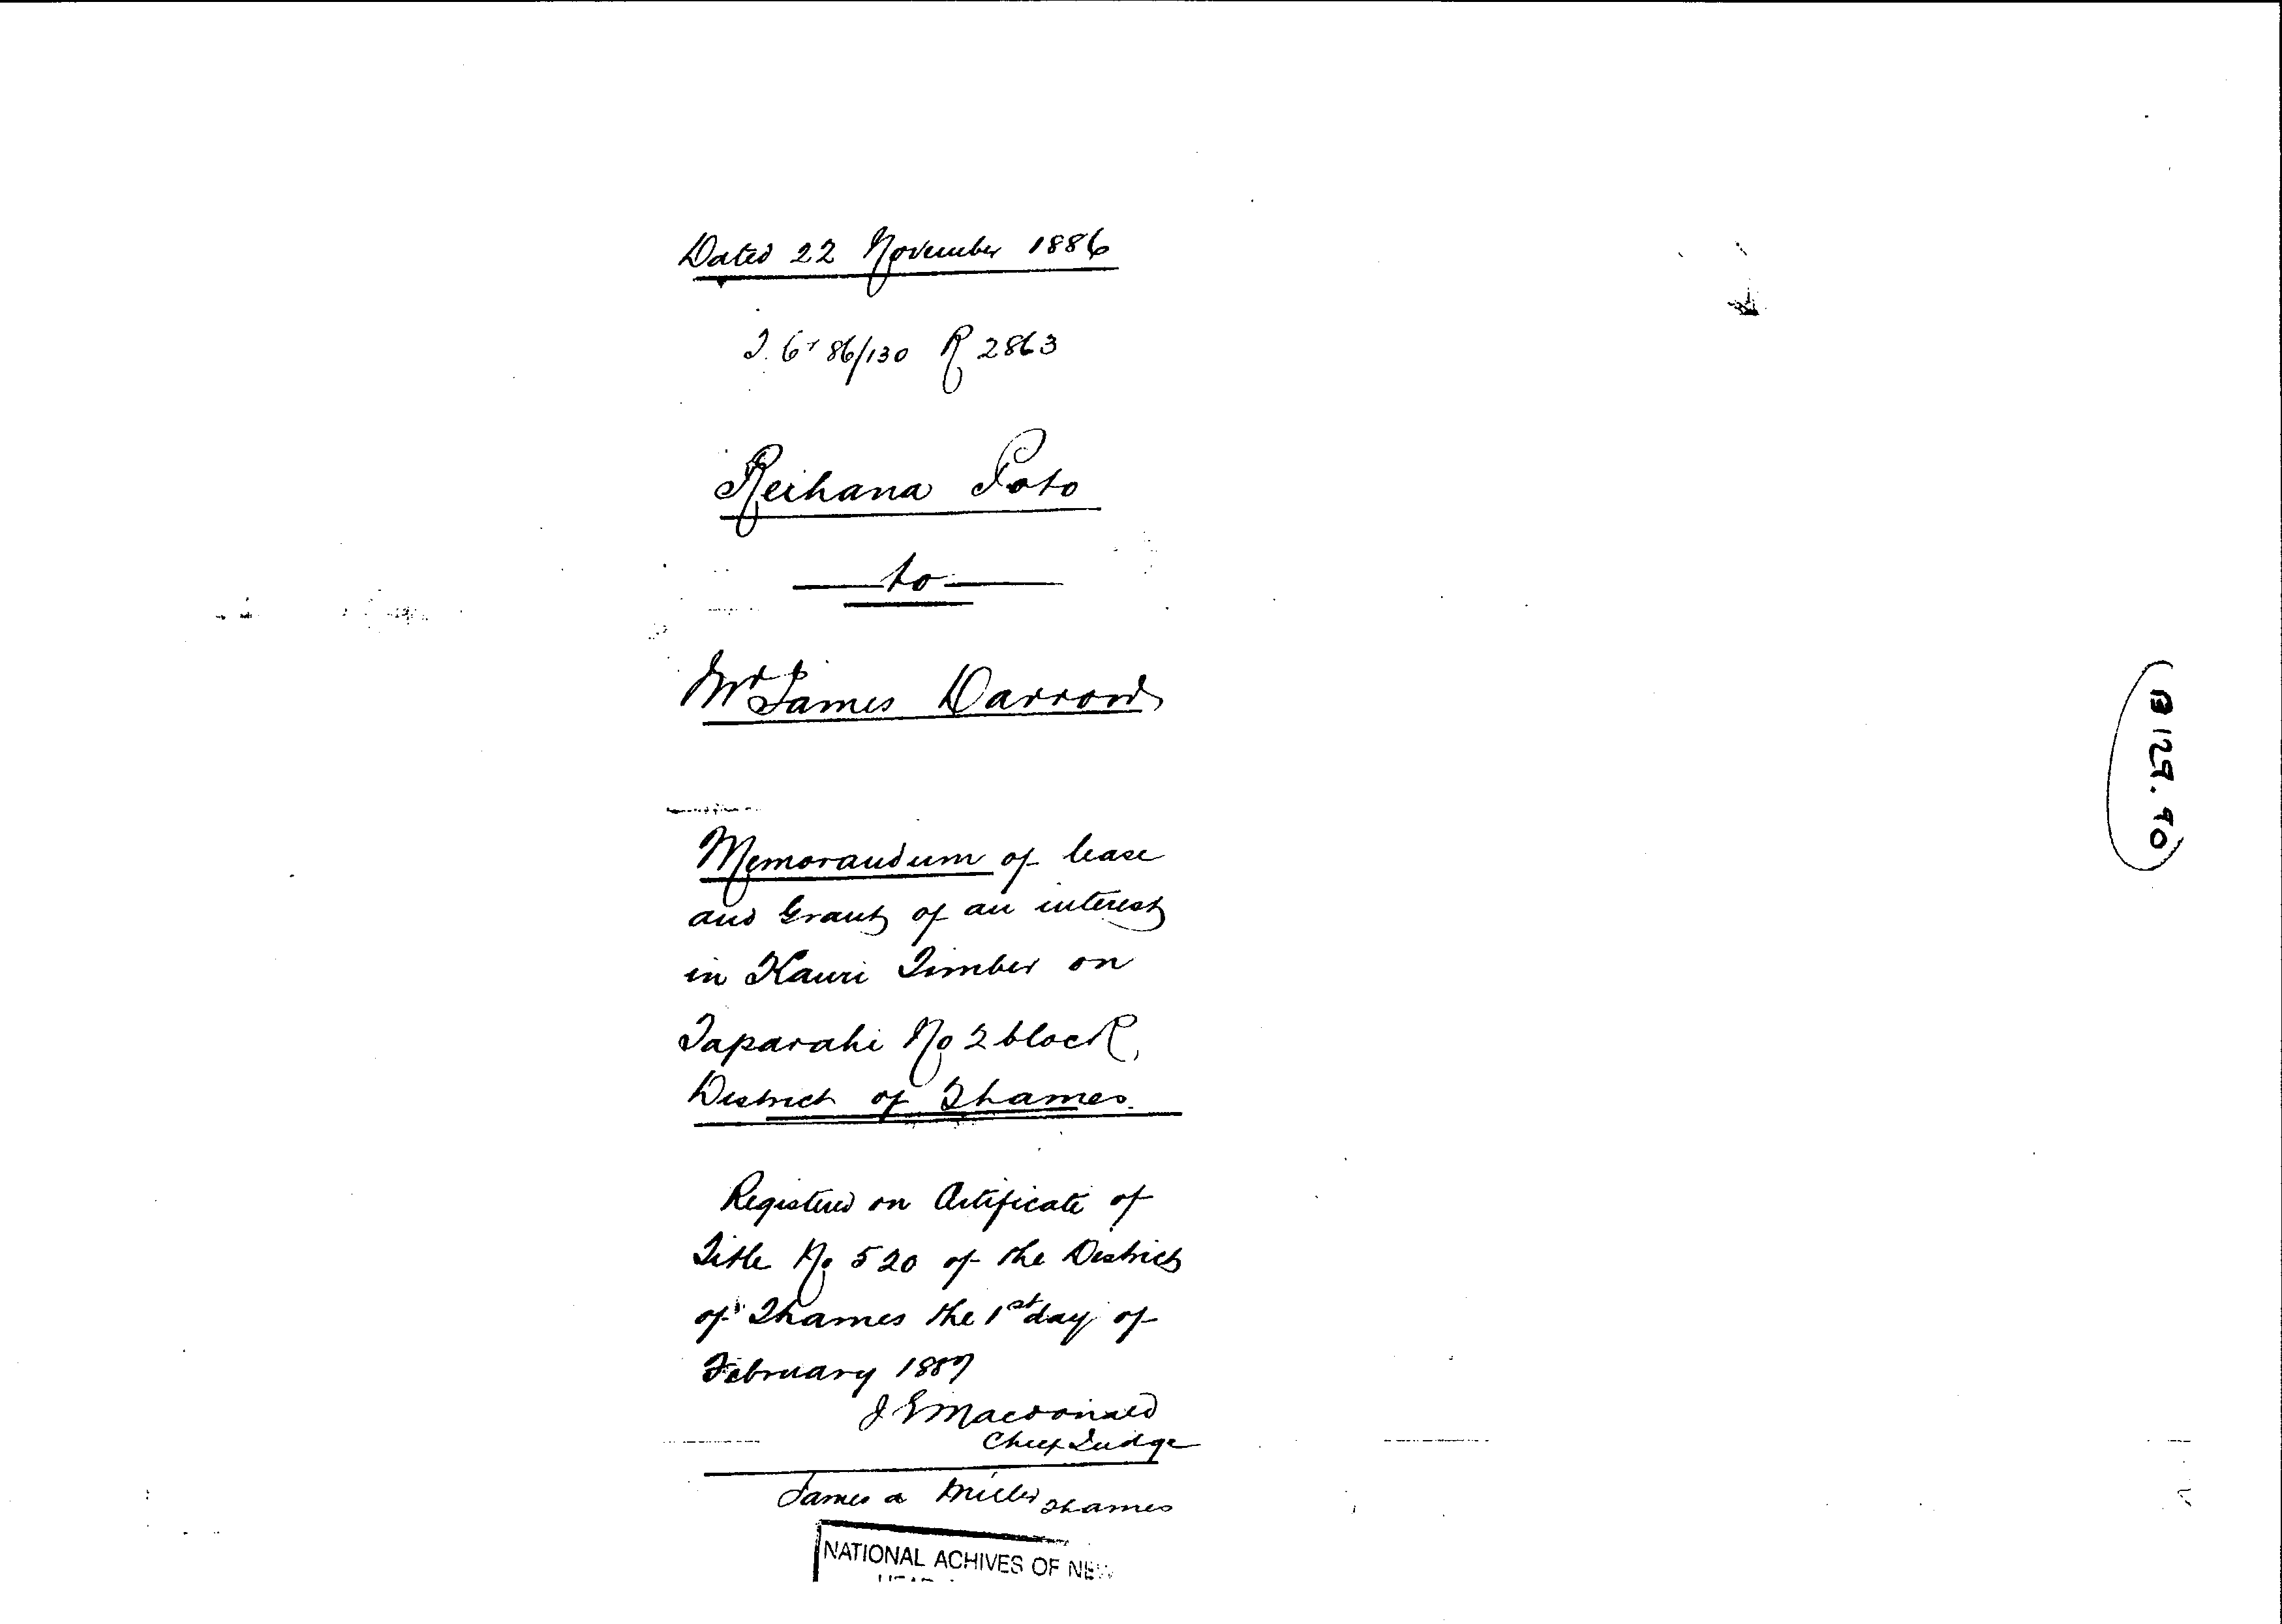 Dated 22 November 1886
T. Gr 86/130 R 2863
Reihana Poto
to
Mr James Darrow
Memorandum of lease
and Grant of an interest
in Kauri Timber on
Taparahi No 2 block,
District of Thames.
Registered on Certificate of
Title No 520 of the District
of Thames the 1st day of
February 1887
J E Macdonald
Chief Judge
James A Miller Thames
NATIONAL ACHIVES OF NEW
B 129. 90